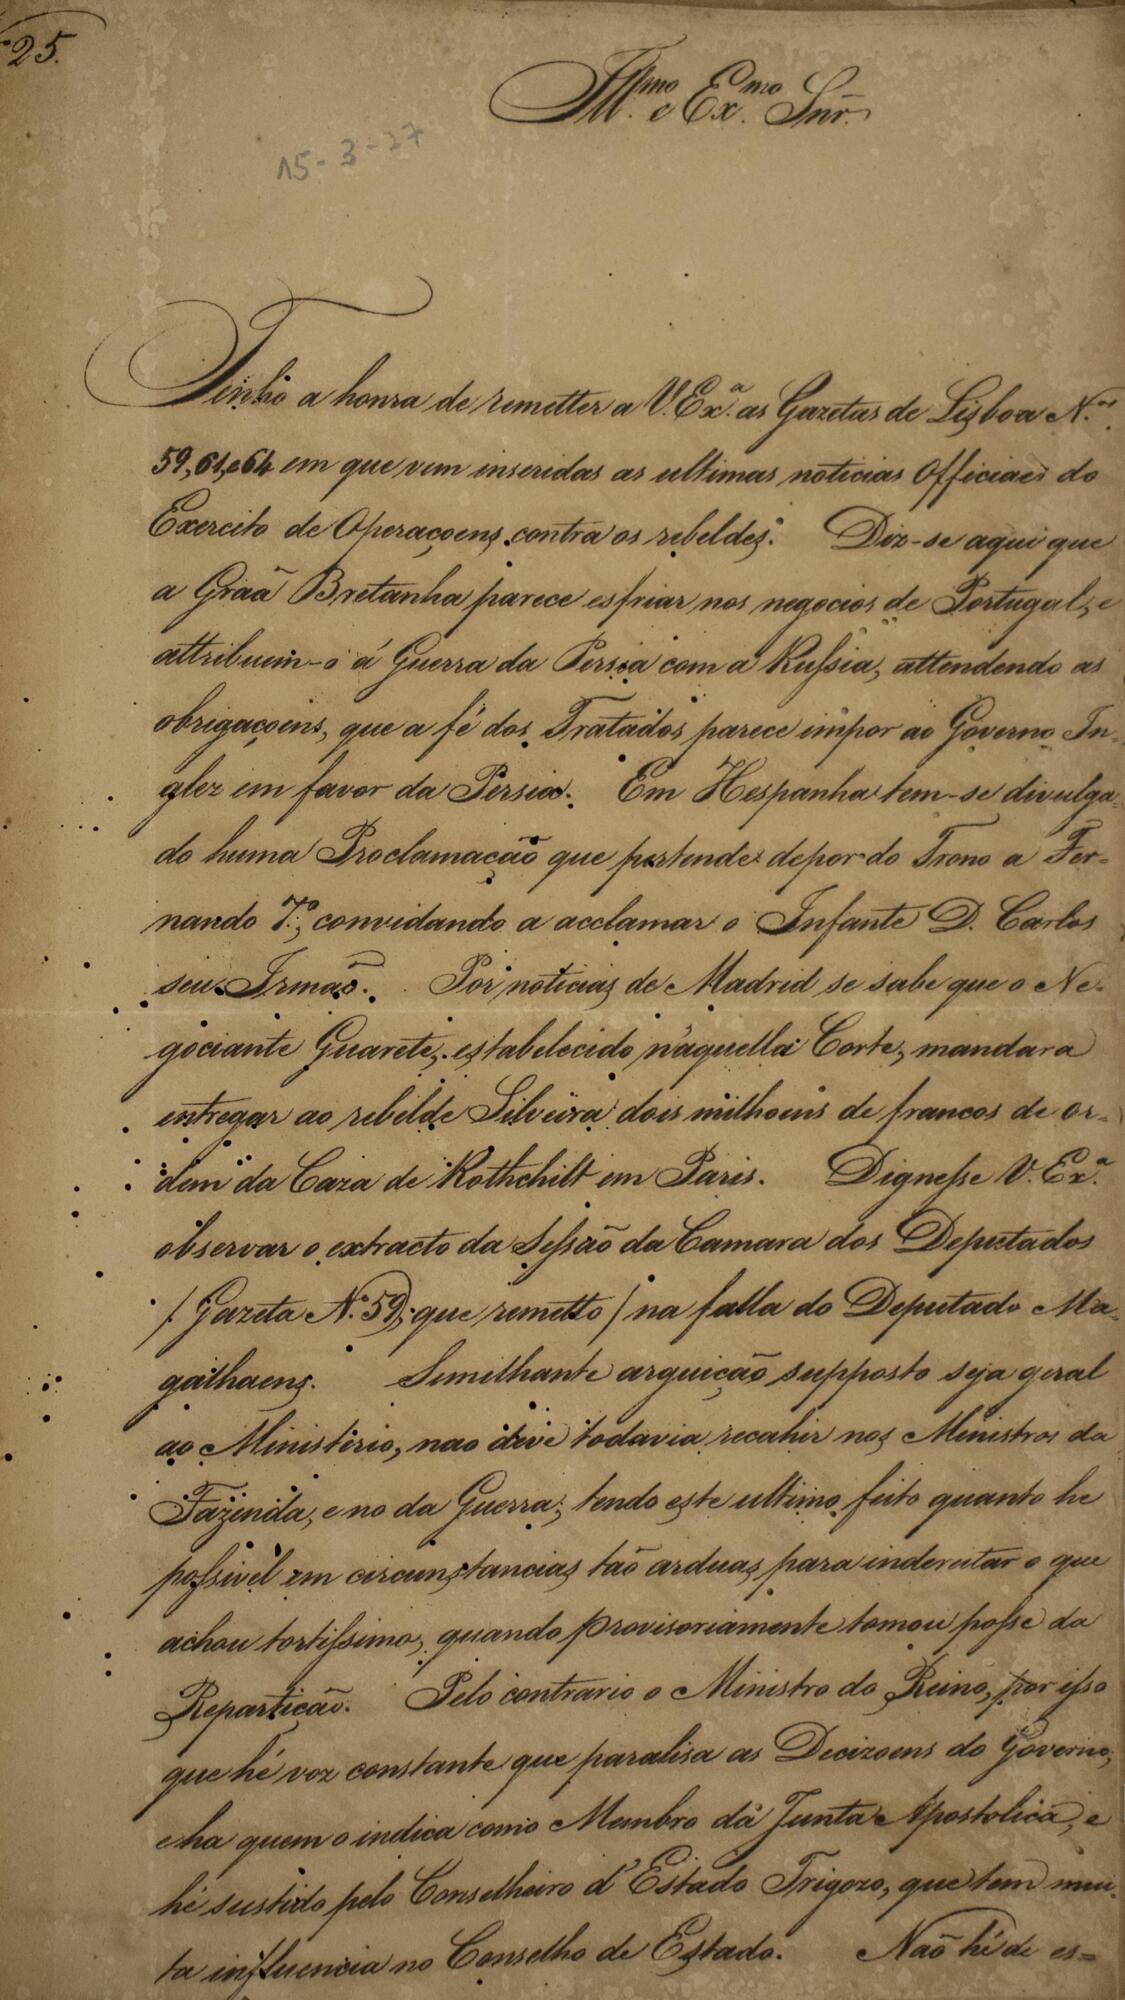 25.
Ill.mo e Ex.mo Snr.
15-3-27
Tenho a honra de remetter a V. Ex.a as Gazetas de Lisboa N.os
59, 61, e 64 em que vem inseridas as ultimas noticias Officiaes do
Exercito de Operaçoens contra os rebeldes. Diz-se aqui que
a Graã Bretanha parece esfriar nos negocios de Portugal, e
attribuem-o á Guerra da Persia com a Russia, attendendo as
obrigaçoins, que a fé dos Tratados parece impor ao Governo In-
glez em favor da Persia. Em Hespanha tem-se divulga-
do huma Proclamação que pertende depor do Trono a Fer-
nando 7.o, convidando a acclamar o Infante D. Carlos
seu Irmaõ. Por noticias de Madrid se sabe que o Ne-
gociante Guarete, estabelecido n'aquella Corte, mandara
entregar ao rebelde Silveira dois milhoins de francos de or-
dem da Caza de Rothchilt em Paris. Dignesse V. Ex.a
observar o extracto da Sessão da Camara dos Deputados
/ Gazeta N.o 59, que remetto / na falla do Deputado Ma-
galhaens. Semilhante arguição supposto seja geral
ao Ministerio, nao deve todavia recahir nos Ministros da
Fazenda, e no da Guerra; tendo este ultimo feito quanto he
possivel em circunstancias taõ arduas, para indereitar o que
achou tortissimo, quando provisoriamente tomou posse da
Repartição. Pelo contrario o Ministro do Reino, por isso
que hé voz constante que paralisa as Decizoens do Governo,
e ha quem o indica como Membro da Junta Apostolica, e
hé sustido pelo Conselheiro d'Estado Trigozo, que tem mui-
ta influencia no Conselho de Estado. Naõ hé de es=